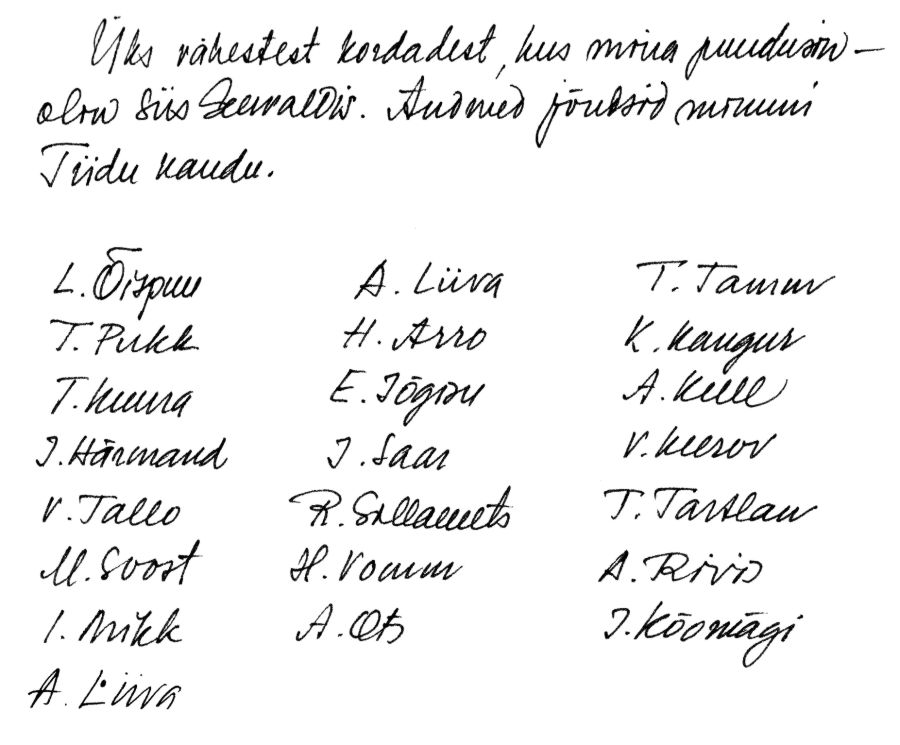 Üks vähestest kordadest, kus mina puudusin –
olin siis Seewaldis. Andmed jõudsid minuni
Tiidu kaudu.
L. Õispuu
A. Liiva
T. Tamm
T. Pukk
H. Arro
K. Kangur
T. Kuura
E. Jõgisu
A. Kull
J. Härmand
J. Saar
V. Keerov
V. Tallo
R. Sillamets
T. Tartlan
M. Soost
H. Vomm
A. Rivis
I. Mikk
A. Ots
J. Kõomägi
A. Liiva